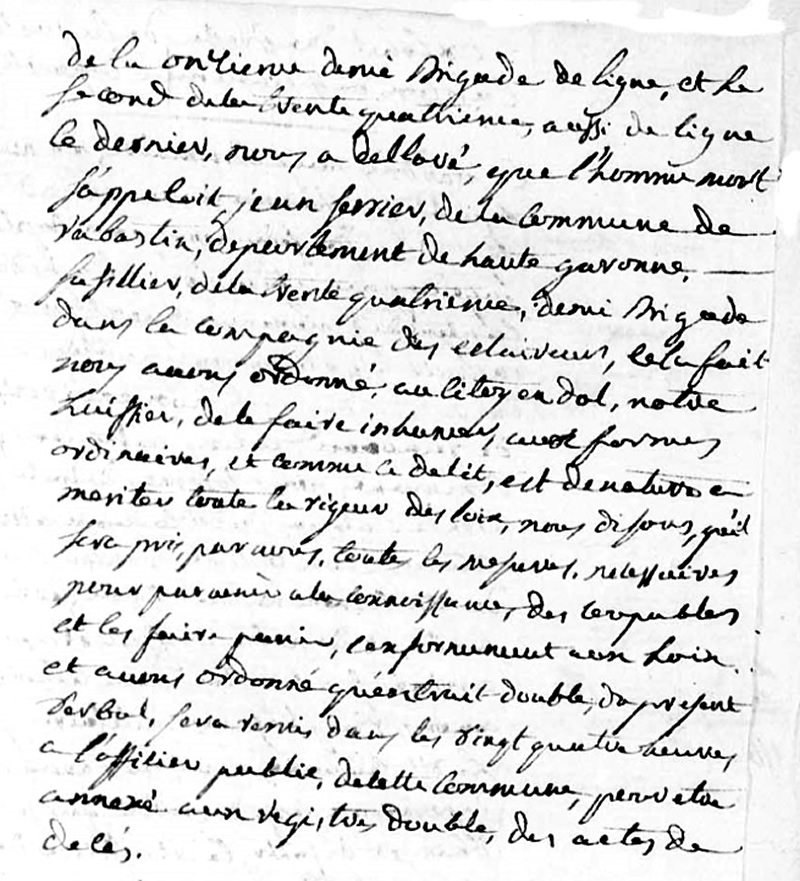 de la onzieme demi Brigade de ligne, et le
second de la trente quatrieme, aussi de ligne
le dernier, nous a dellaré, que l'homme mort
s'appeloit jean ferrier, de la Commune de
rabastin, departement de haute garonne,
fusillier, de la trente quatrieme, demi Brigade
dans la compagnie des eclaireurs, cela fait
nous avons ordonné, au Citoyen dol, notre
huissier, de le faire inhumer, aux formes
ordinaires, et comme ce delit, est de nature a
meriter toute la rigeur des loix, nous disons, qu'il
sera pris, par nous, toutes les mesures, necessaires
pour parvenir a la connoissance, des coupables
et les faire punir, conformement aux Loix.
et avons ordonné qu'extrait double, du present
verbal, sera remis dans les vingt quatre heures,
a l'officier public, de cette Commune, pour etre
annexé aux registres double, des actes de
decés.